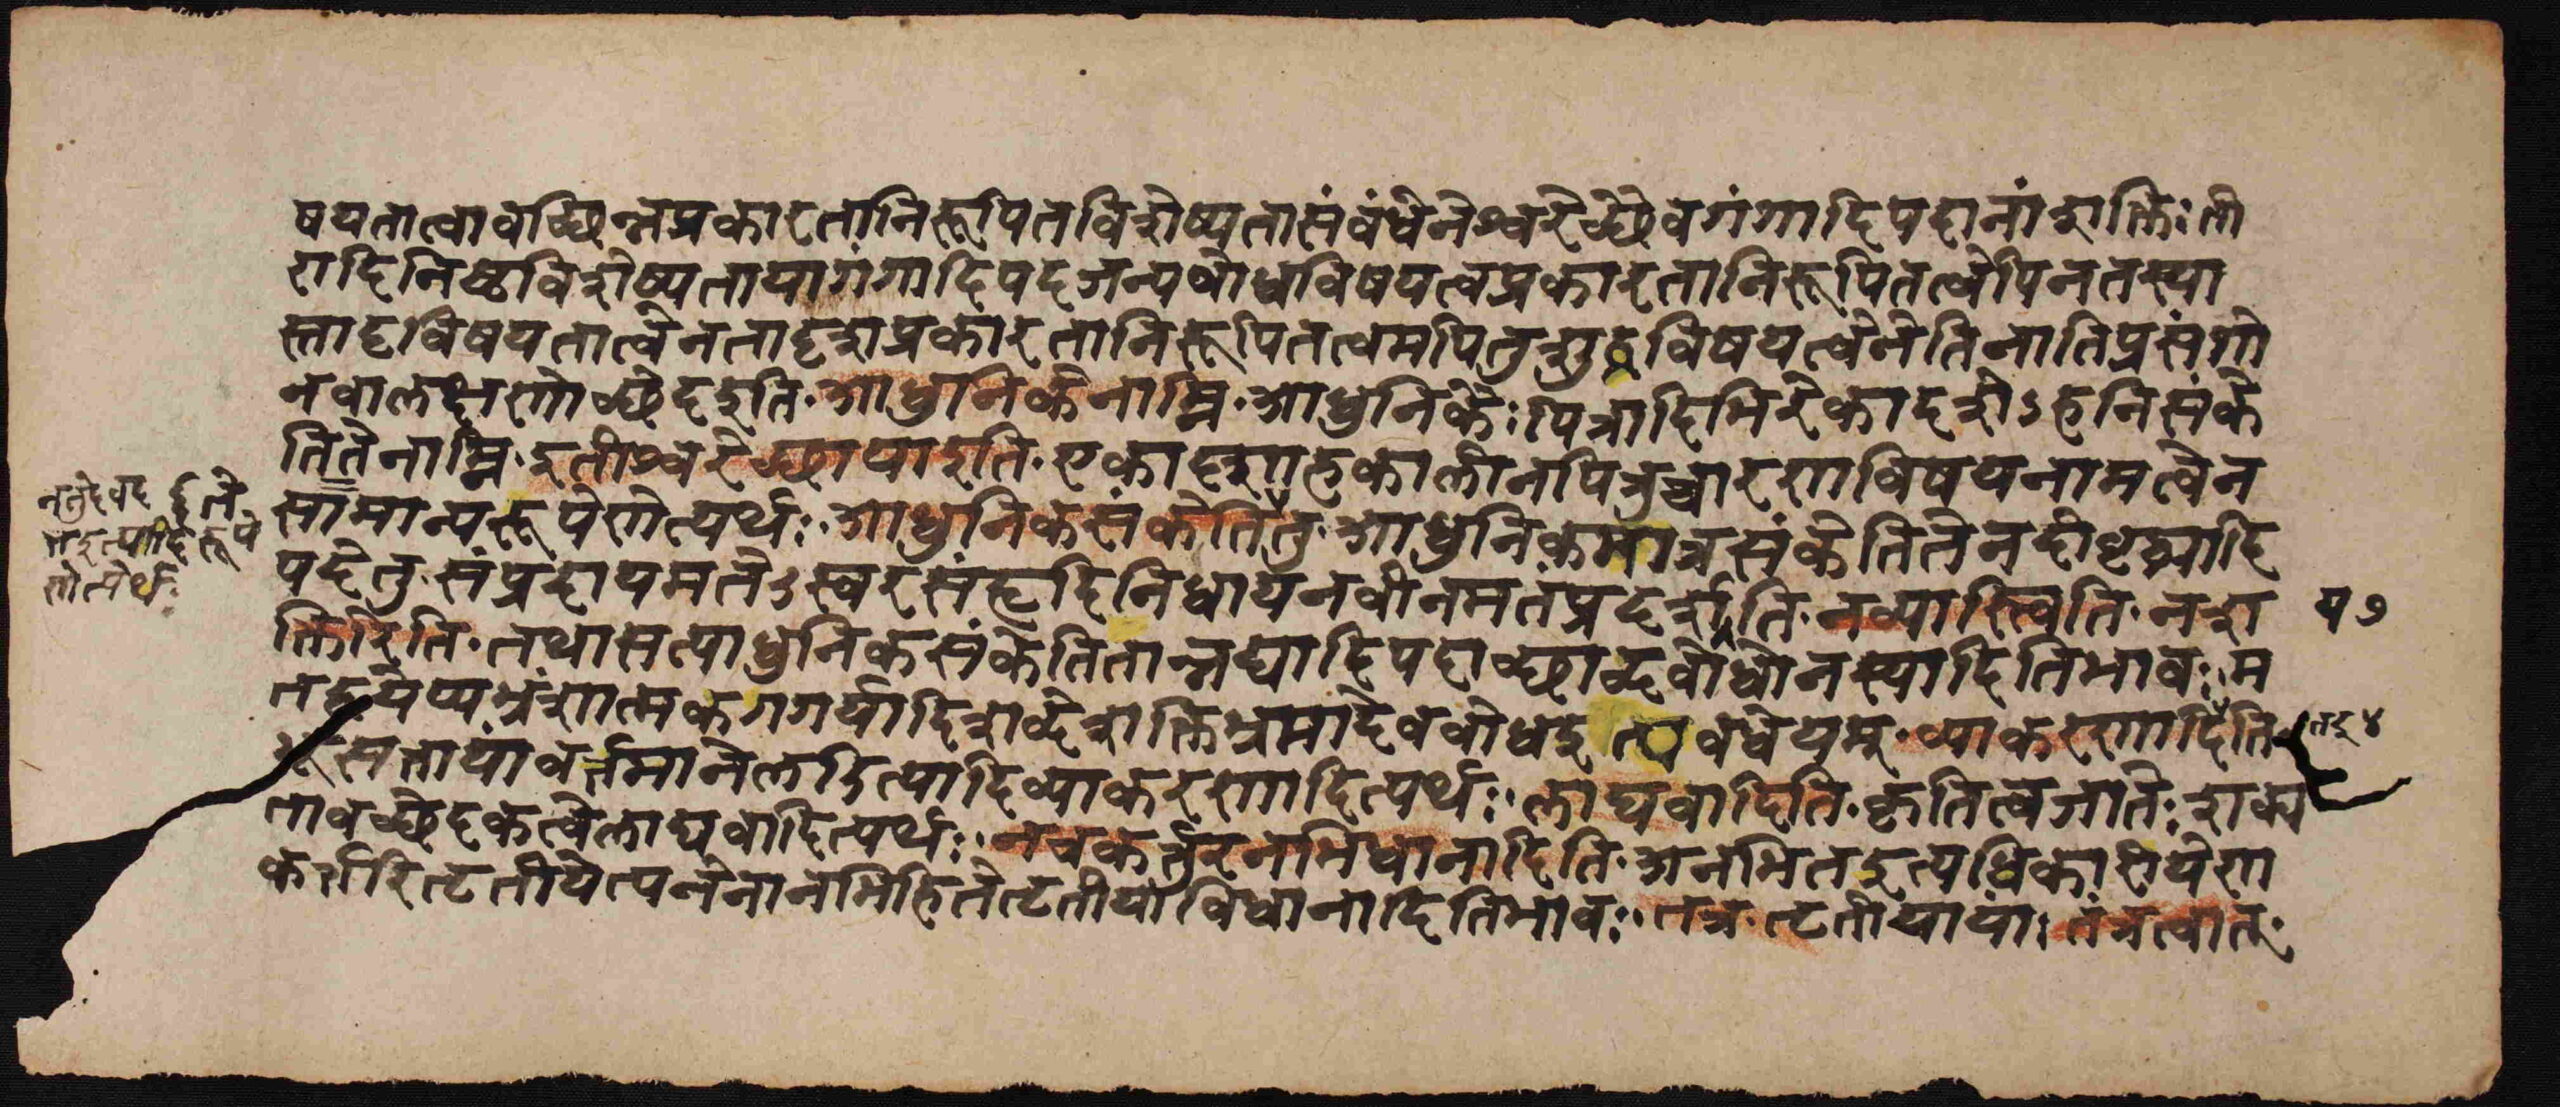 षयतात्वावच्छिन्नप्रकारतानिरूपितविशेष्यतासंबंधेनेश्वरेच्छैवगंगादिपदानांशक्तिः ती
रादिनिष्ठविशेष्यतायागंगादिपदजन्यबोधविषयत्वप्रकारतानिरूपितत्वेपिनतस्या
स्तादृविषयतात्वेनतादृशप्रकारतानिरूपितत्वमपितुशुद्धविषयत्वेनेतिनातिप्रसंगो
नवालक्षणोच्छेदइति॰आधुनिकेनाम्नि॰आधुनिकैःपित्रादिभिरेकादशेऽहनिसंके
तितेनाम्नि॰इतीश्वरेच्छायाइति॰एकादशाहकालीनपित्रुच्चारणविषयनामत्वेन
सामान्यरूपेणेत्यर्थः॰आधुनिकसंकेतितेतु॰आधुनिकमात्रसंकेतितेनदीवृद्ध्यादि
पदेतु॰संप्रदायमतेऽस्वरसंहृदिनिधायनवीनमतंप्रदर्शयति॰नव्यास्त्विति॰नश
क्तिरिति॰तथासत्याधुनिकसंकेतितान्नद्यादिपदाच्छाब्दबोधोनस्यादितिभावः म
तद्वयेप्यभ्रंशात्मकगगर्यादिशब्देशक्तिभ्रमादेवबोधइत्यवधेयम्॰व्याकरणादिति॰
भूसत्तायांवर्तमानेलडित्यादिव्याकरणादित्यर्थः॰लाघवादिति॰कृतित्वजातेःशक्य
तावच्छेदकत्वेलाघवादित्यर्थः॰नचकर्तुरनभिधानादिति॰अनभितइत्यधिकारीयेण
कर्तरितृतीयेत्यनेनानभिहितेतृतीयाविधानादितिभावः॰तत्र॰तृतीयायां।तंत्रत्वात्॰